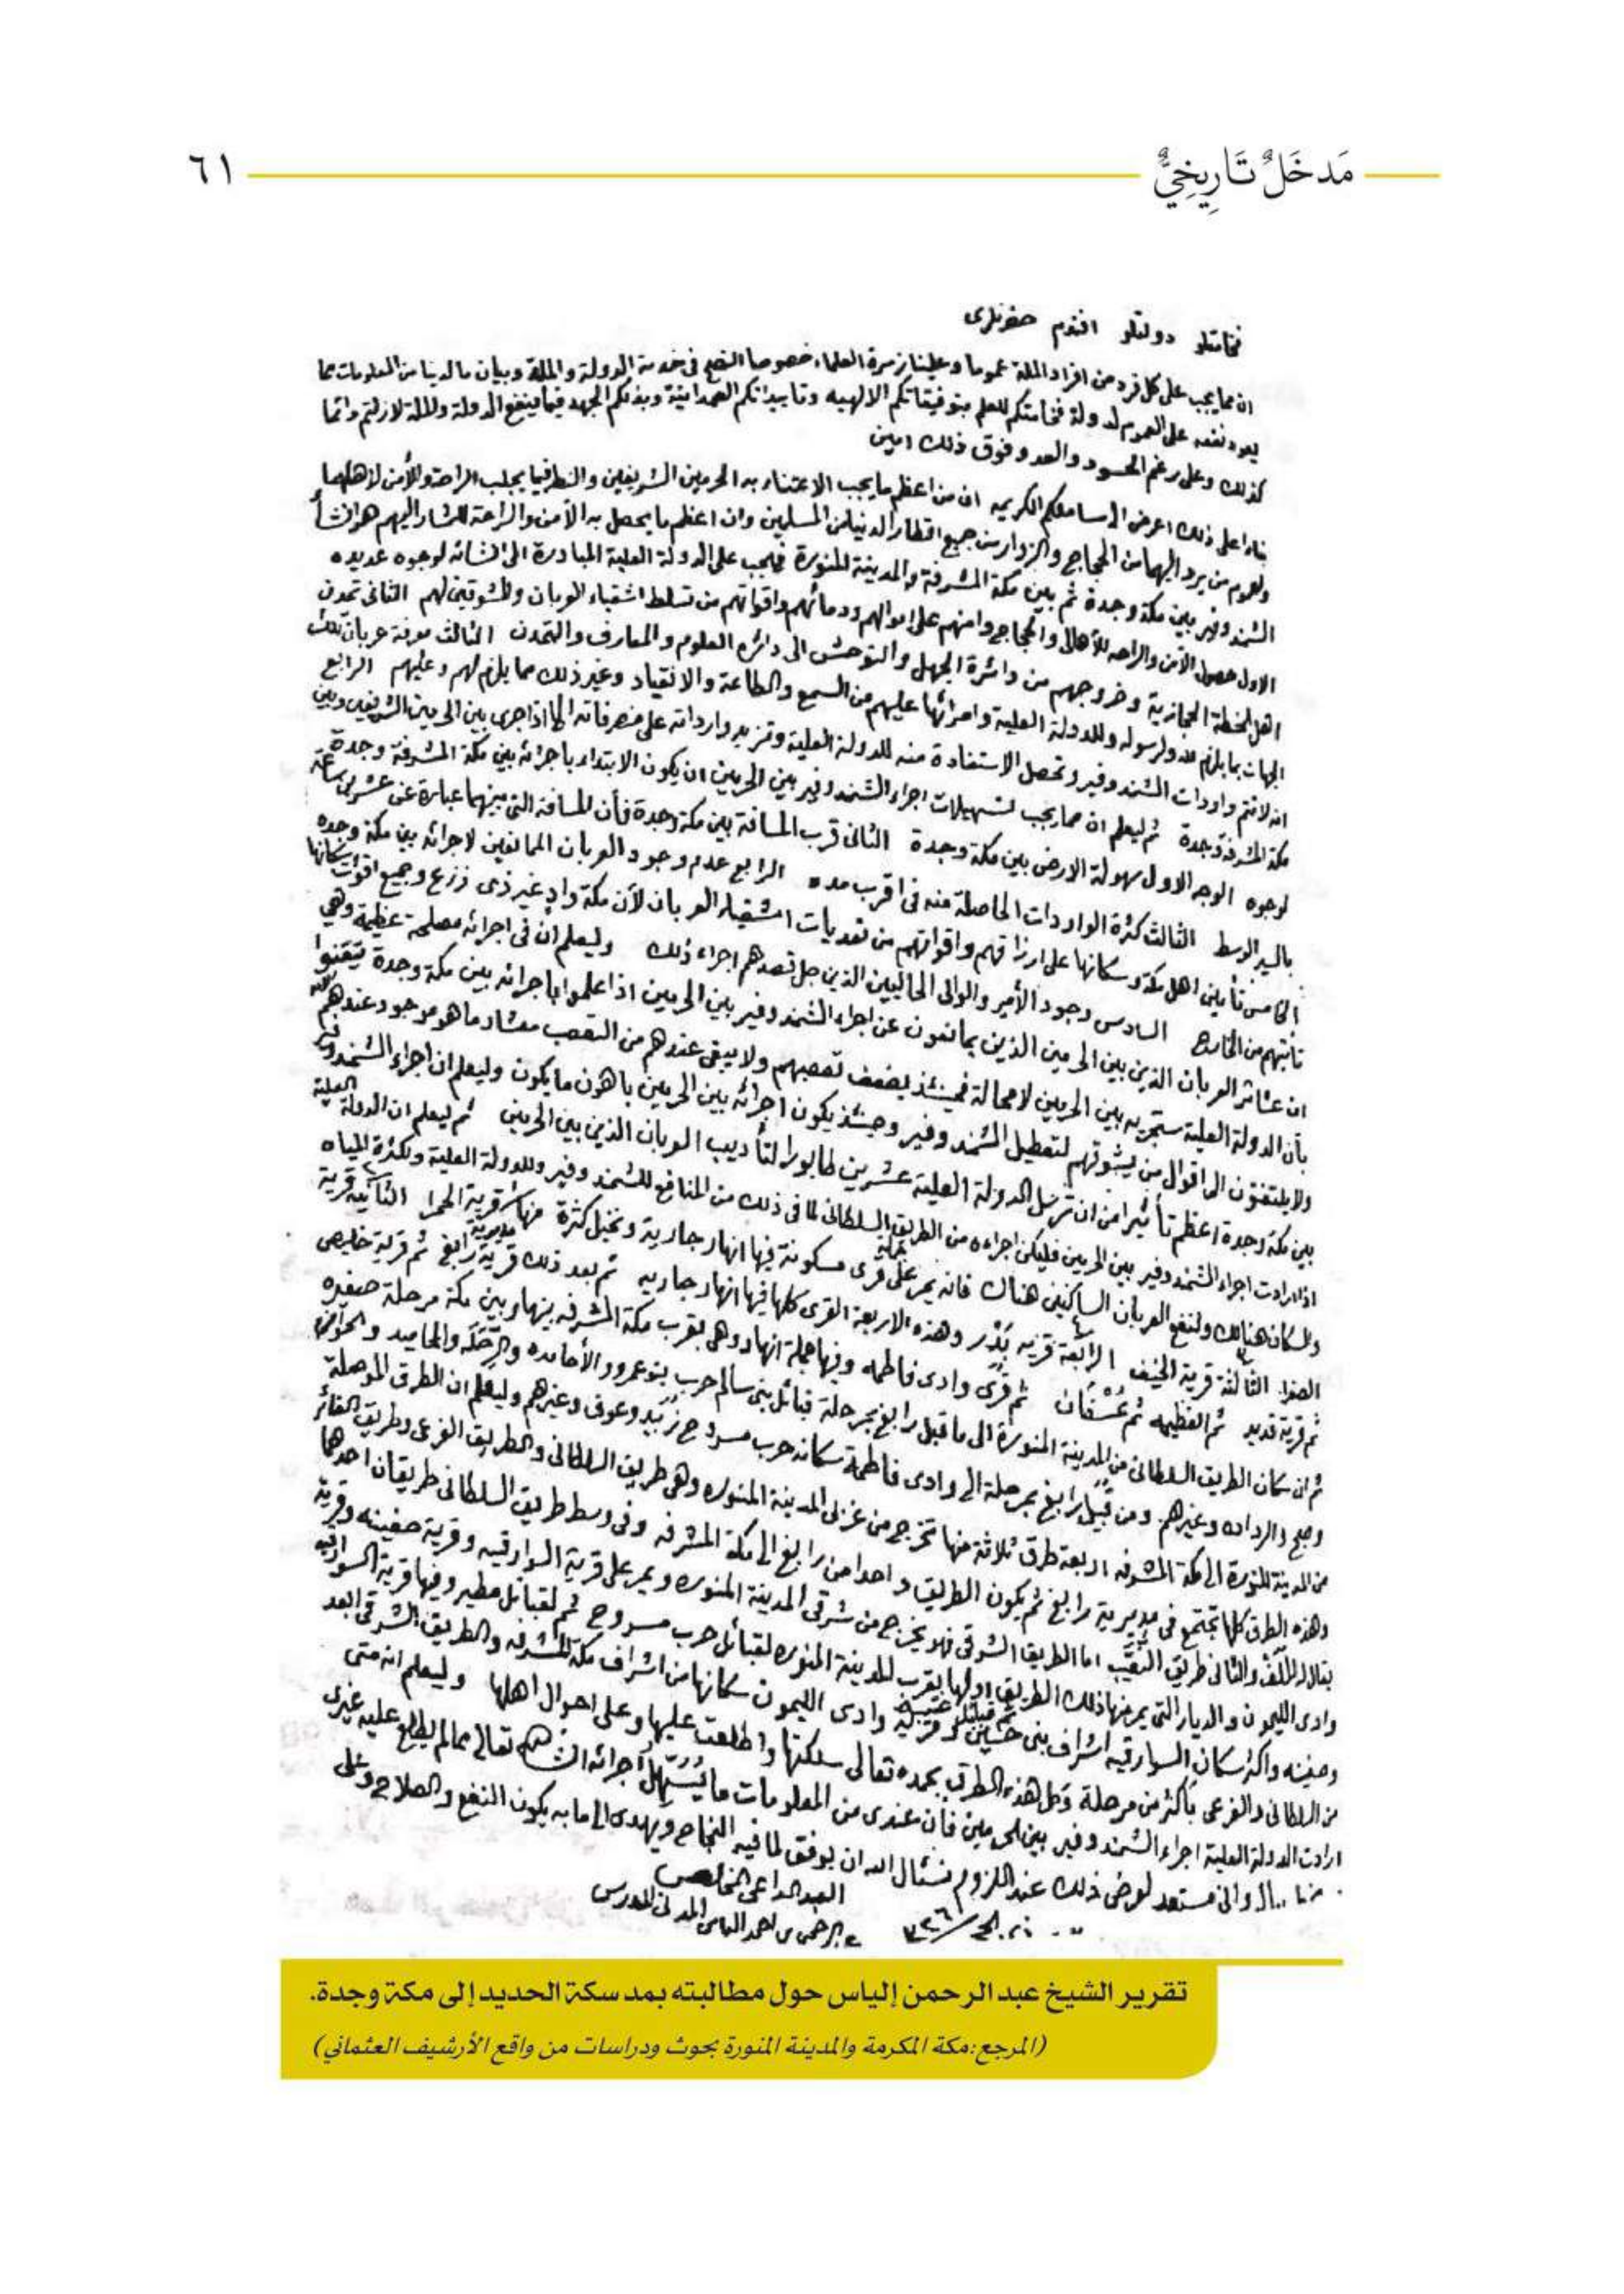 مَدخَلٌ تَارِيخِيٌّ
٦١
فخامتلو دولتلو افندم حضرتلرى
ان مما يجب على كل فرد من افراد الملة عموما وعلينا زمرة العلماء خصوصا النصح في خدمة الدولة والملة وبيان ما لدينا من المعلومات مما
يعود نفعه على العموم لدولة فخامتكم للعلم بتوفيقاتكم الالهيه وتاييداتكم الصمدانية وبذلكم الجهد فيما ينفع الدولة والملة لازلتم دائما
كذلك وعلى رغم الحسود والعدو فوق ذلك امين
بناء على ذلك اعرض الى مسامعكم الكريمه ان من اعظم ما يجب الاعتناء به الحرمين الشريفين والنظر فيما يجلب الراحة والأمن لاهلهما
ولعموم من يرد اليهما من الحجاج والزوار من جميع اقطار الدنيا من المسلمين وان اعظم ما يحصل به الأمن والراحة للمشار اليهم هو انشأ
الشمندوفير بين مكة وجدة ثم بين مكة المشرفة والمدينة المنورة فيجب على الدولة العلية المبادرة الى انشائه لوجوه عديده
الاول حصول الأمن والراحه للأهالى والحجاج وامنهم على اموالهم ودمائهم واقواتهم من تسلط اشقياء العربان والمشوقين لهم الثانى تمدن
اهل الخطة الحجازية وخروجهم من دائرة الجهل والتوحش الى دائرة العلوم والمعارف والتمدن الثالث معرفة عربان تلك
الجهات بما يلزم لله ولرسوله وللدولة العلية وامرائها عليهم من السمع والطاعة والانقياد وغير ذلك مما يلزم لهم وعليهم الرابع
انه لاتتم واردات الشمندوفير وتحصل الاستفادة منه للدولة العلية وتزيد وارداته على مصرفاته الا اذا جرى بين الحرمين الشريفين وبين
مكة المشرفة وجدة ثم ليعلم ان مما يجب لتسهيلات اجراء الشمندوفير بين الحرمين ان يكون الابتداء باجرائه بين مكة المشرفة وجدة
لوجوه الوجه الاول سهولة الارض بين مكة وجدة الثانى قرب المسافة بين مكة وجدة فأن المسافة التى بينهما عبارة عن عشرين ساعة
بالسير الوسط الثالث كثرة الواردات الحاصلة منه في اقرب مده الرابع عدم وجود العربان الممانعين لاجرائه بين مكة وجده
الخامس تأمين اهل مكة وسكانها على ارزاقهم واقواتهم من تعديات اشقياء العربان لأن مكة واد غير ذى زرع وجميع اقوات سكانها
تأتيهم من الخارج السادس وجود الأمير والوالى الحاليين الذين جل قصدهم اجراء ذلك وليعلم ان في اجرائه مصلحة عظيمة وهي
ان عشائر العربان الذين بين الحرمين الذين يمانعون عن اجراء الشمندوفير بين الحرمين اذا علموا باجرائه بين مكة وجدة تيقنوا
بأن الدولة العلية ستجريه بين الحرمين لامحالة فحينئذ يضعف تعصبهم ولا يبقى عندهم من التعصب معشار ماهو موجود عندهم
ولا يلتفتون الى اقوال من يشوقهم لتعطيل الشمندوفير وحينئذ يكون اجرائه بين الحرمين باهون ما يكون وليعلم ان اجراء الشمندوفير
بين مكة وجدة اعظم تأثيرا من ان ترسل الدولة العلية عشرين طابورا لتأديب العربان الذين بين الحرمين ثم ليعلم ان الدولة العلية
اذا ارادت اجراء الشمندوفير بين الحرمين فليكن اجراءه من الطريق السلطانى لما في ذلك من المنافع للشمندوفير وللدولة العلية ولكثرة المياه
والسكان هنالك ولنفع العربان الساكنين هناك فانه يمر على قرى مسكونة فيها انهار جارية ونخيل كثرة منها قرية الحمرا الثانية قرية
الصفرا الثالثة قرية الخيف الرابعة قريه بَدْر وهذه الاربعة القرى كلها فيها انهار جاريه ثم بعد ذلك قرية رابغ ثم قرية خليص
ثم قرية قديد ثم القظيمه ثم عُسْفان ثم قرى وادى فاطمه وفيها جملة انهار وهي بقرب مكة المشرفه بينها وبين مكة مرحلة صغيره
ثم ان سكان الطريق السلطانى من المدينة المنورة الى ما قبل رابغ بمرحلة قبائل بنى سالم حرب بنوعمرو والأحامده والرحله والمحاميد والحوازم
وصبح والرداده وغيرهم ومن قبيل رابغ بمرحلة الى وادى فاطمة سكانه حرب مسروح زُبَيد وعوف وغيرهم وليعلم ان الطرق الموصلة
من المدينة المنورة الى مكة المشرفه اربعة طرق ثلاثة منها تخرج من غربى المدينة المنوره وهي طريق السلطانى والطريق الفرعى وطريق الغائر
وهذه الطرق كلها تجتمع في مديرية رابغ ثم يكون الطريق واحدا من رابغ الى مكة المشرفه وفي وسط طريق السلطانى طريقان احدهما
يقال له الملَف والثانى طريق النقيب اما الطريق الشرقى فهو يخرج من شرقى المدينة المنوره ويمر على قرية السوارقيه وقرية صفينه وقرية
وادى الليمون والديار التى يمر منها ذلك الطريق اولها بقرب المدينة المنوره لقبائل حرب مسروح ثم لقبائل مطير وفيها قرية السوارقيه
وصفينه واكثر سكان السوارقيه اشراف بنى حسين ثم قبائل عتيبه وقرية وادى الليمون سكانها من اشراف مكة المشرفه والطريق الشرقى ابعد
من السلطانى والفرعى بأكثر من مرحلة وكل هذه الطرق بحمده تعالى سلكتها واطلعت عليها وعلى احوال اهلها وليعلم انه متى
ارادت الدولة العلية اجراء الشمندوفير بين الحرمين فان عندى من المعلومات ما يُسَهّل اجرائه ان شاء الله تعالى مما لم يطلع عليه غيرى
وانى مستعد لعرض ذلك عند اللزوم فنسئال الله ان يوفق لما فيه النجاح ويهدى الى ما به يكون النفع والصلاح
العبد الداعى المخلص
عبدالرحمن بن احمد الياس المدنى المدرس
تقرير الشيخ عبد الرحمن إلياس حول مطالبته بمد سكة الحديد إلى مكة وجدة.
(المرجع: مكة المكرمة والمدينة المنورة بحوث ودراسات من واقع الأرشيف العثماني)